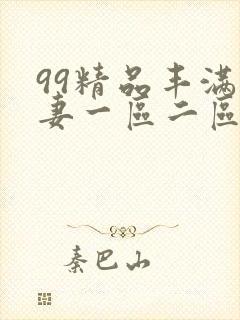 99精品丰满
妻一區二區
秦巴山